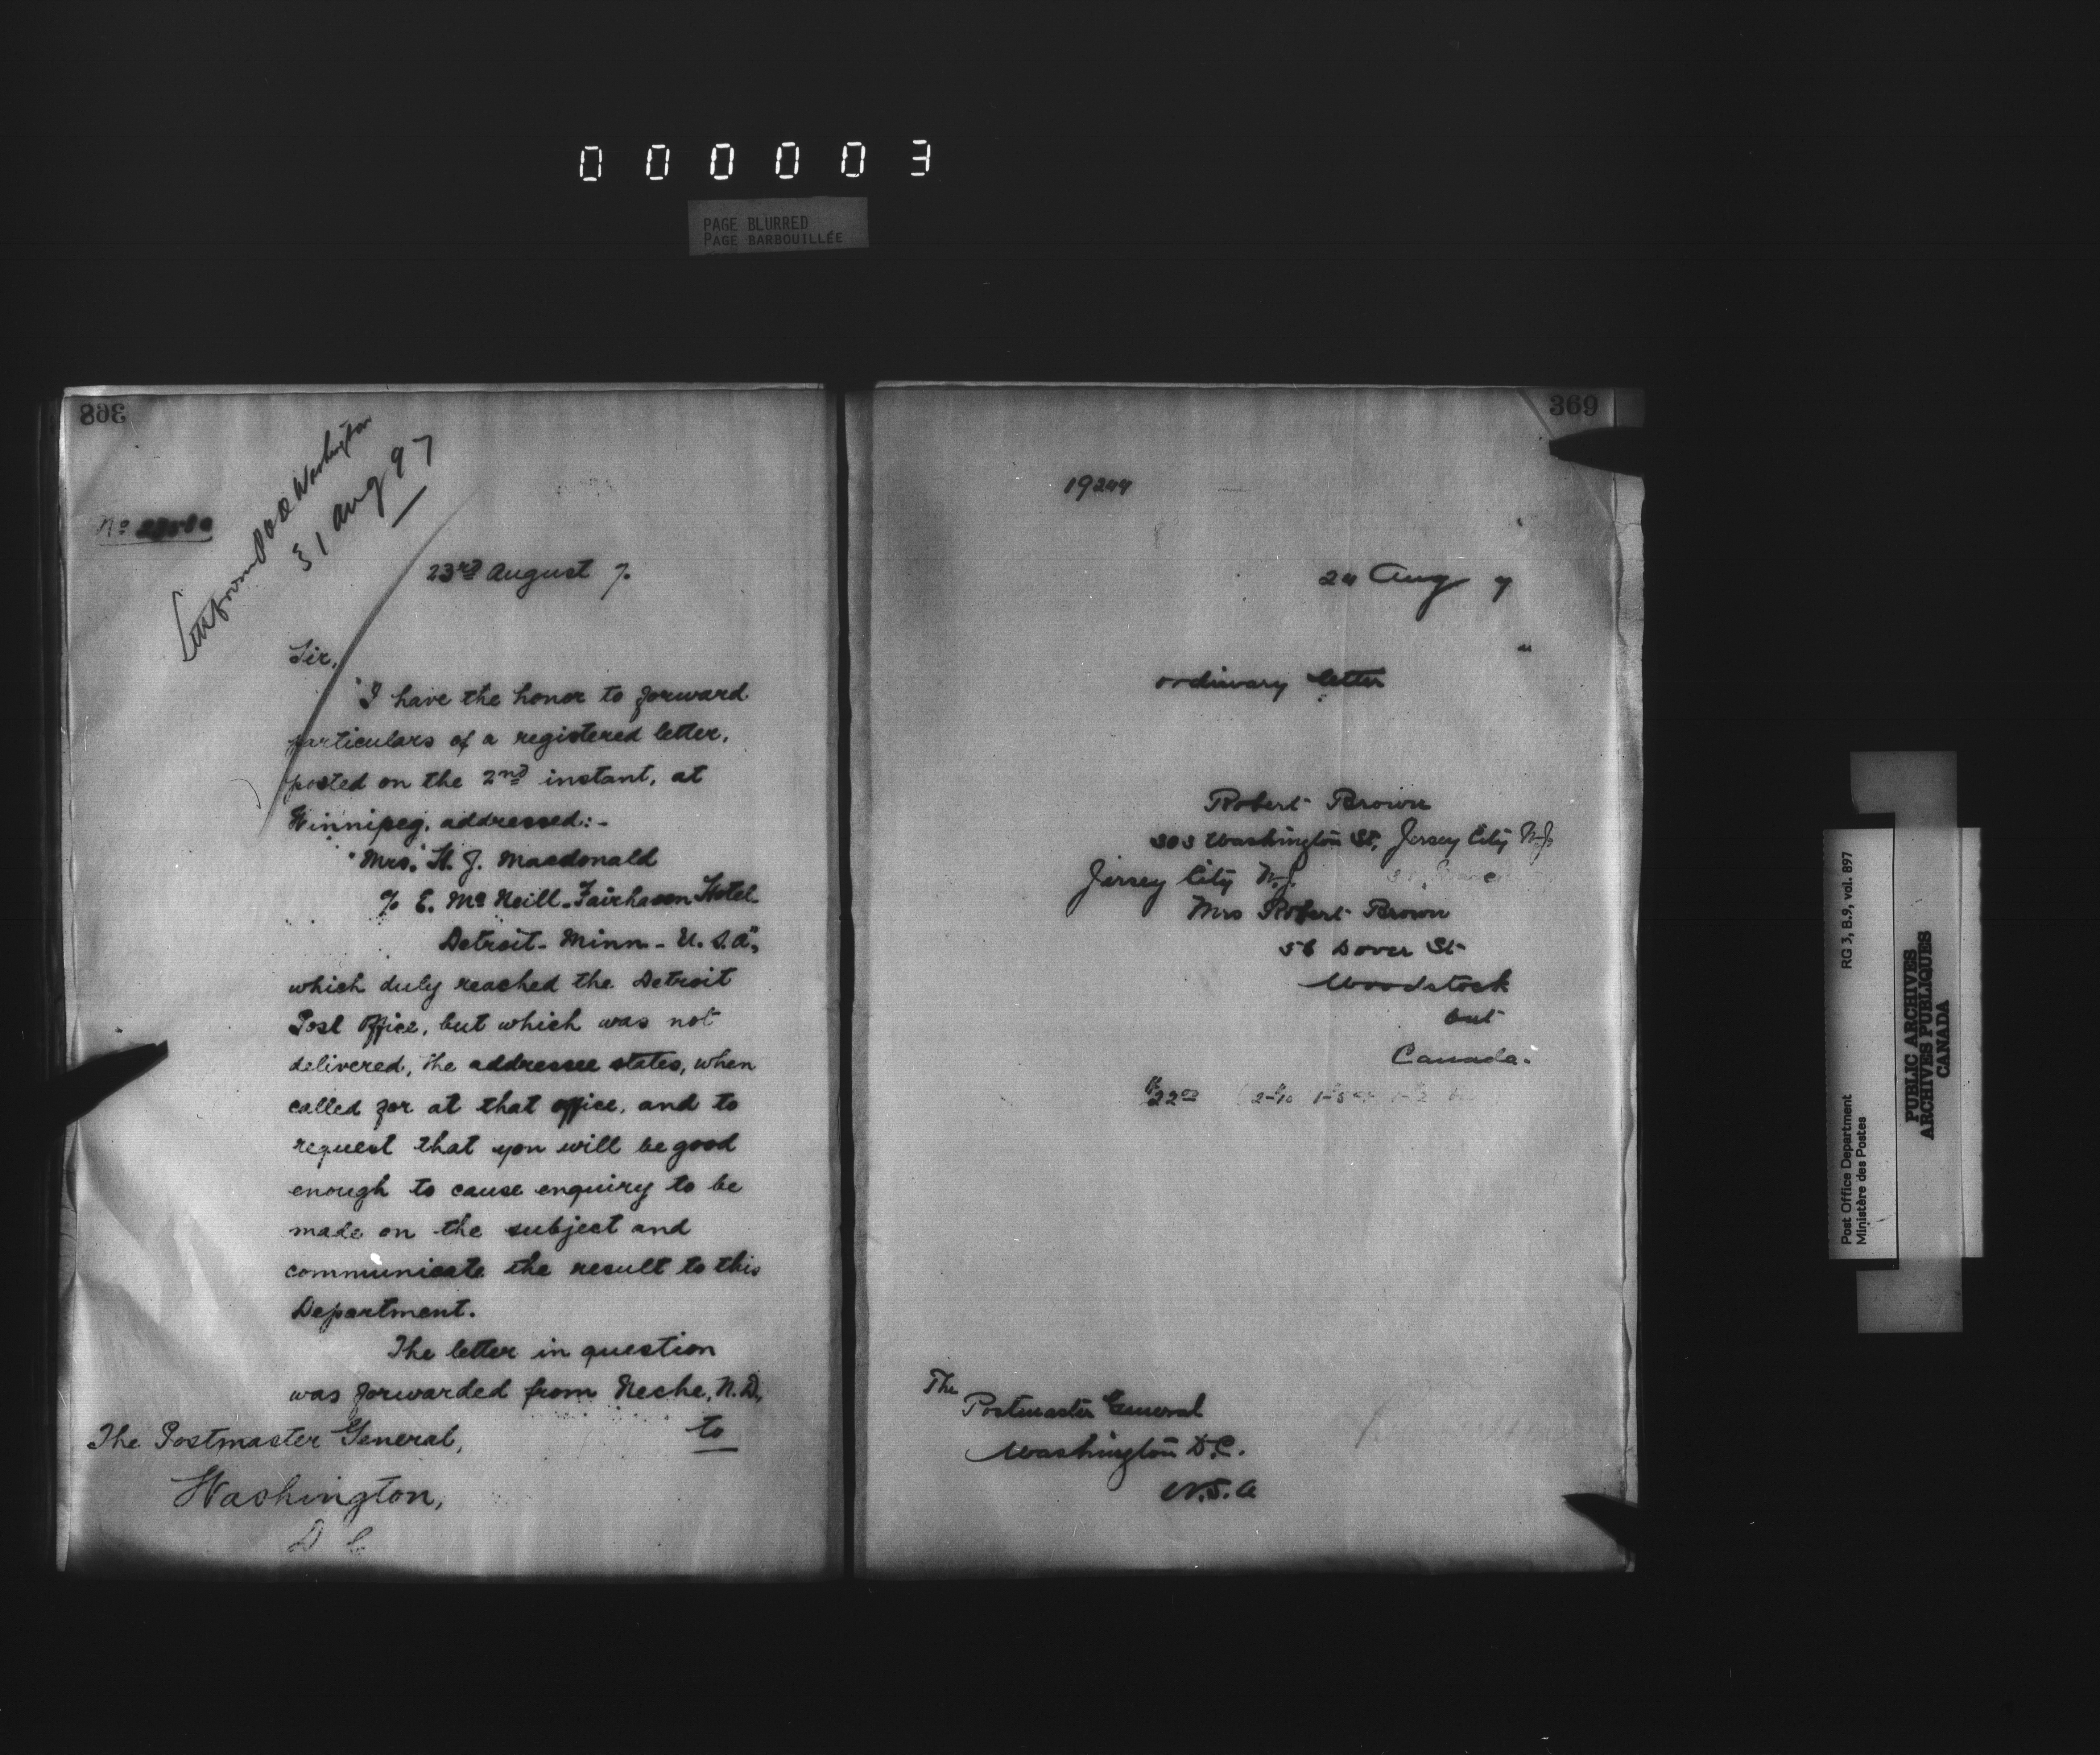 000003
PAGE BLURRED
PAGE BARBOUILLÉE
368
Let from P O D Washington
31 Aug 97
No
23rd August 7.
Sir,
I have the honor to forward
particulars of a registered letter,
posted on the 2nd instant, at
Winnipeg, addressed:-
"Mrs. H. J. Macdonald
c/o E. Mc Neill - Fairhaven Hotel
Detroit - Minn - U.S.A",
which duly reached the Detroit
Post Office, but which was not
delivered, the addressee states, when
called for at that office, and to
request that you will be good
enough to cause enquiry to be
made on the subject and
communicate the result to this
Department.
The letter in question
was forwarded from Neche, N.D,
to
The Postmaster General,
Washington,
D C
369
19244
24 Aug 7
ordinary letter
Robert Brown
303 Washington St, Jersey City N.J.
Jersey City N.J.
Mrs Robert Brown
56 Dover St
Woodstock
Ont
Canada.
$22.00
The
Postmaster General
Washington D.C.
U.S.A
Post Office Department
Ministère des Postes
RG 3, B.9, vol. 897
PUBLIC ARCHIVES
ARCHIVES PUBLIQUES
CANADA